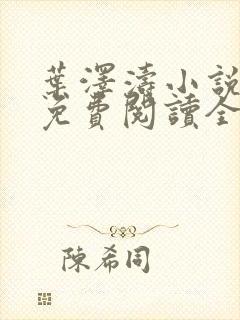 葉澤濤小說
免費閱讀全
陳希同